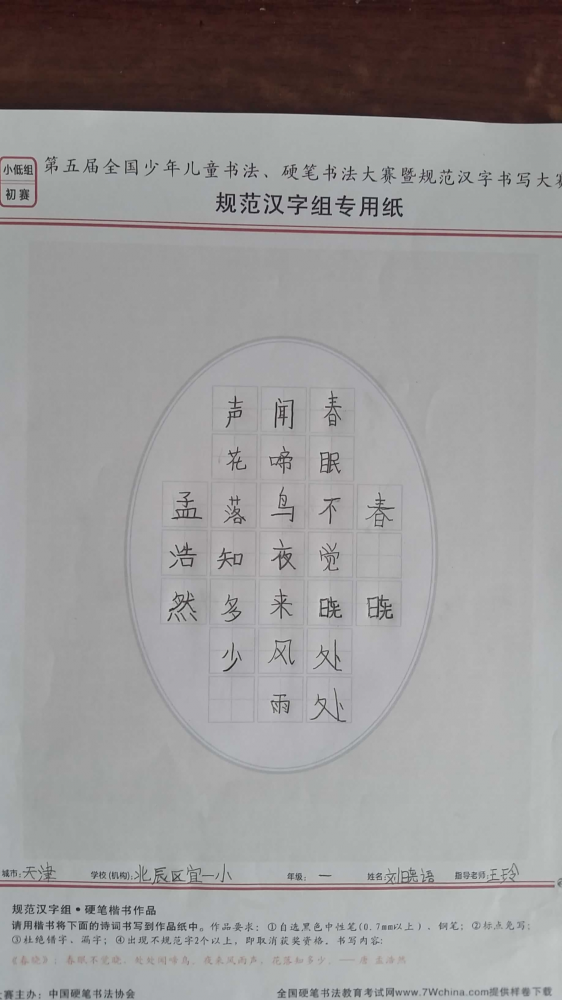 小低组
初赛
第五届全国少年儿童书法、硬笔书法大赛暨规范汉字书写大赛
规范汉字组专用纸
春晓
春眠不觉晓处处
闻啼鸟夜来风雨
声花落知多少
孟浩然
城市:天津 学校(机构):北辰区宜一小 年级:一 姓名:刘晓语 指导老师:王玲
规范汉字组·硬笔楷书作品
请用楷书将下面的诗词书写到作品纸中。作品要求:①自选黑色中性笔(0.7mm以上)、钢笔;②标点免写;
③杜绝错字、漏字;④出现不规范字2个以上,即取消获奖资格。书写内容:
《春晓》:春眠不觉晓,处处闻啼鸟。夜来风雨声,花落知多少。— 唐 孟浩然
大赛主办:中国硬笔书法协会 全国硬笔书法教育考试网www.7Wchina.com提供样卷下载